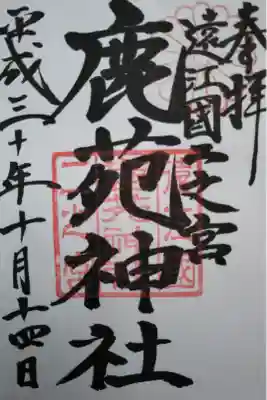 奉拝
遠江國二之宮
鹿苑神社
平成三十年十月十四日